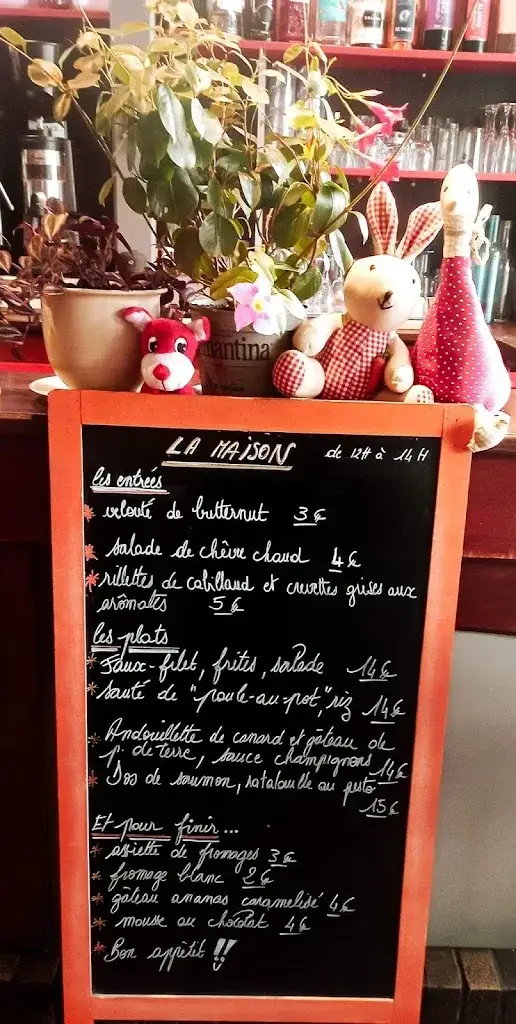 mantina
LA MAISON de 12H à 14H
les entrées
* velouté de butternut 3€
* salade de chèvre chaud 4€
* rillettes de cabillaud et crevettes grises aux
arômates 5€
les plats
* Faux-filet, frites, salade 14€
* sauté de "poule-au-pot", riz 14€
* Andouillette de canard et gâteau de
p. de terre, sauce champignons 14€
* Dos de saumon, ratatouille au pesto
15€
Et pour finir...
* assiette de fromages 3€
* fromage blanc 2€
* gâteau ananas caramélisé 4€
* mousse au chocolat 4€
* Bon appétit !!